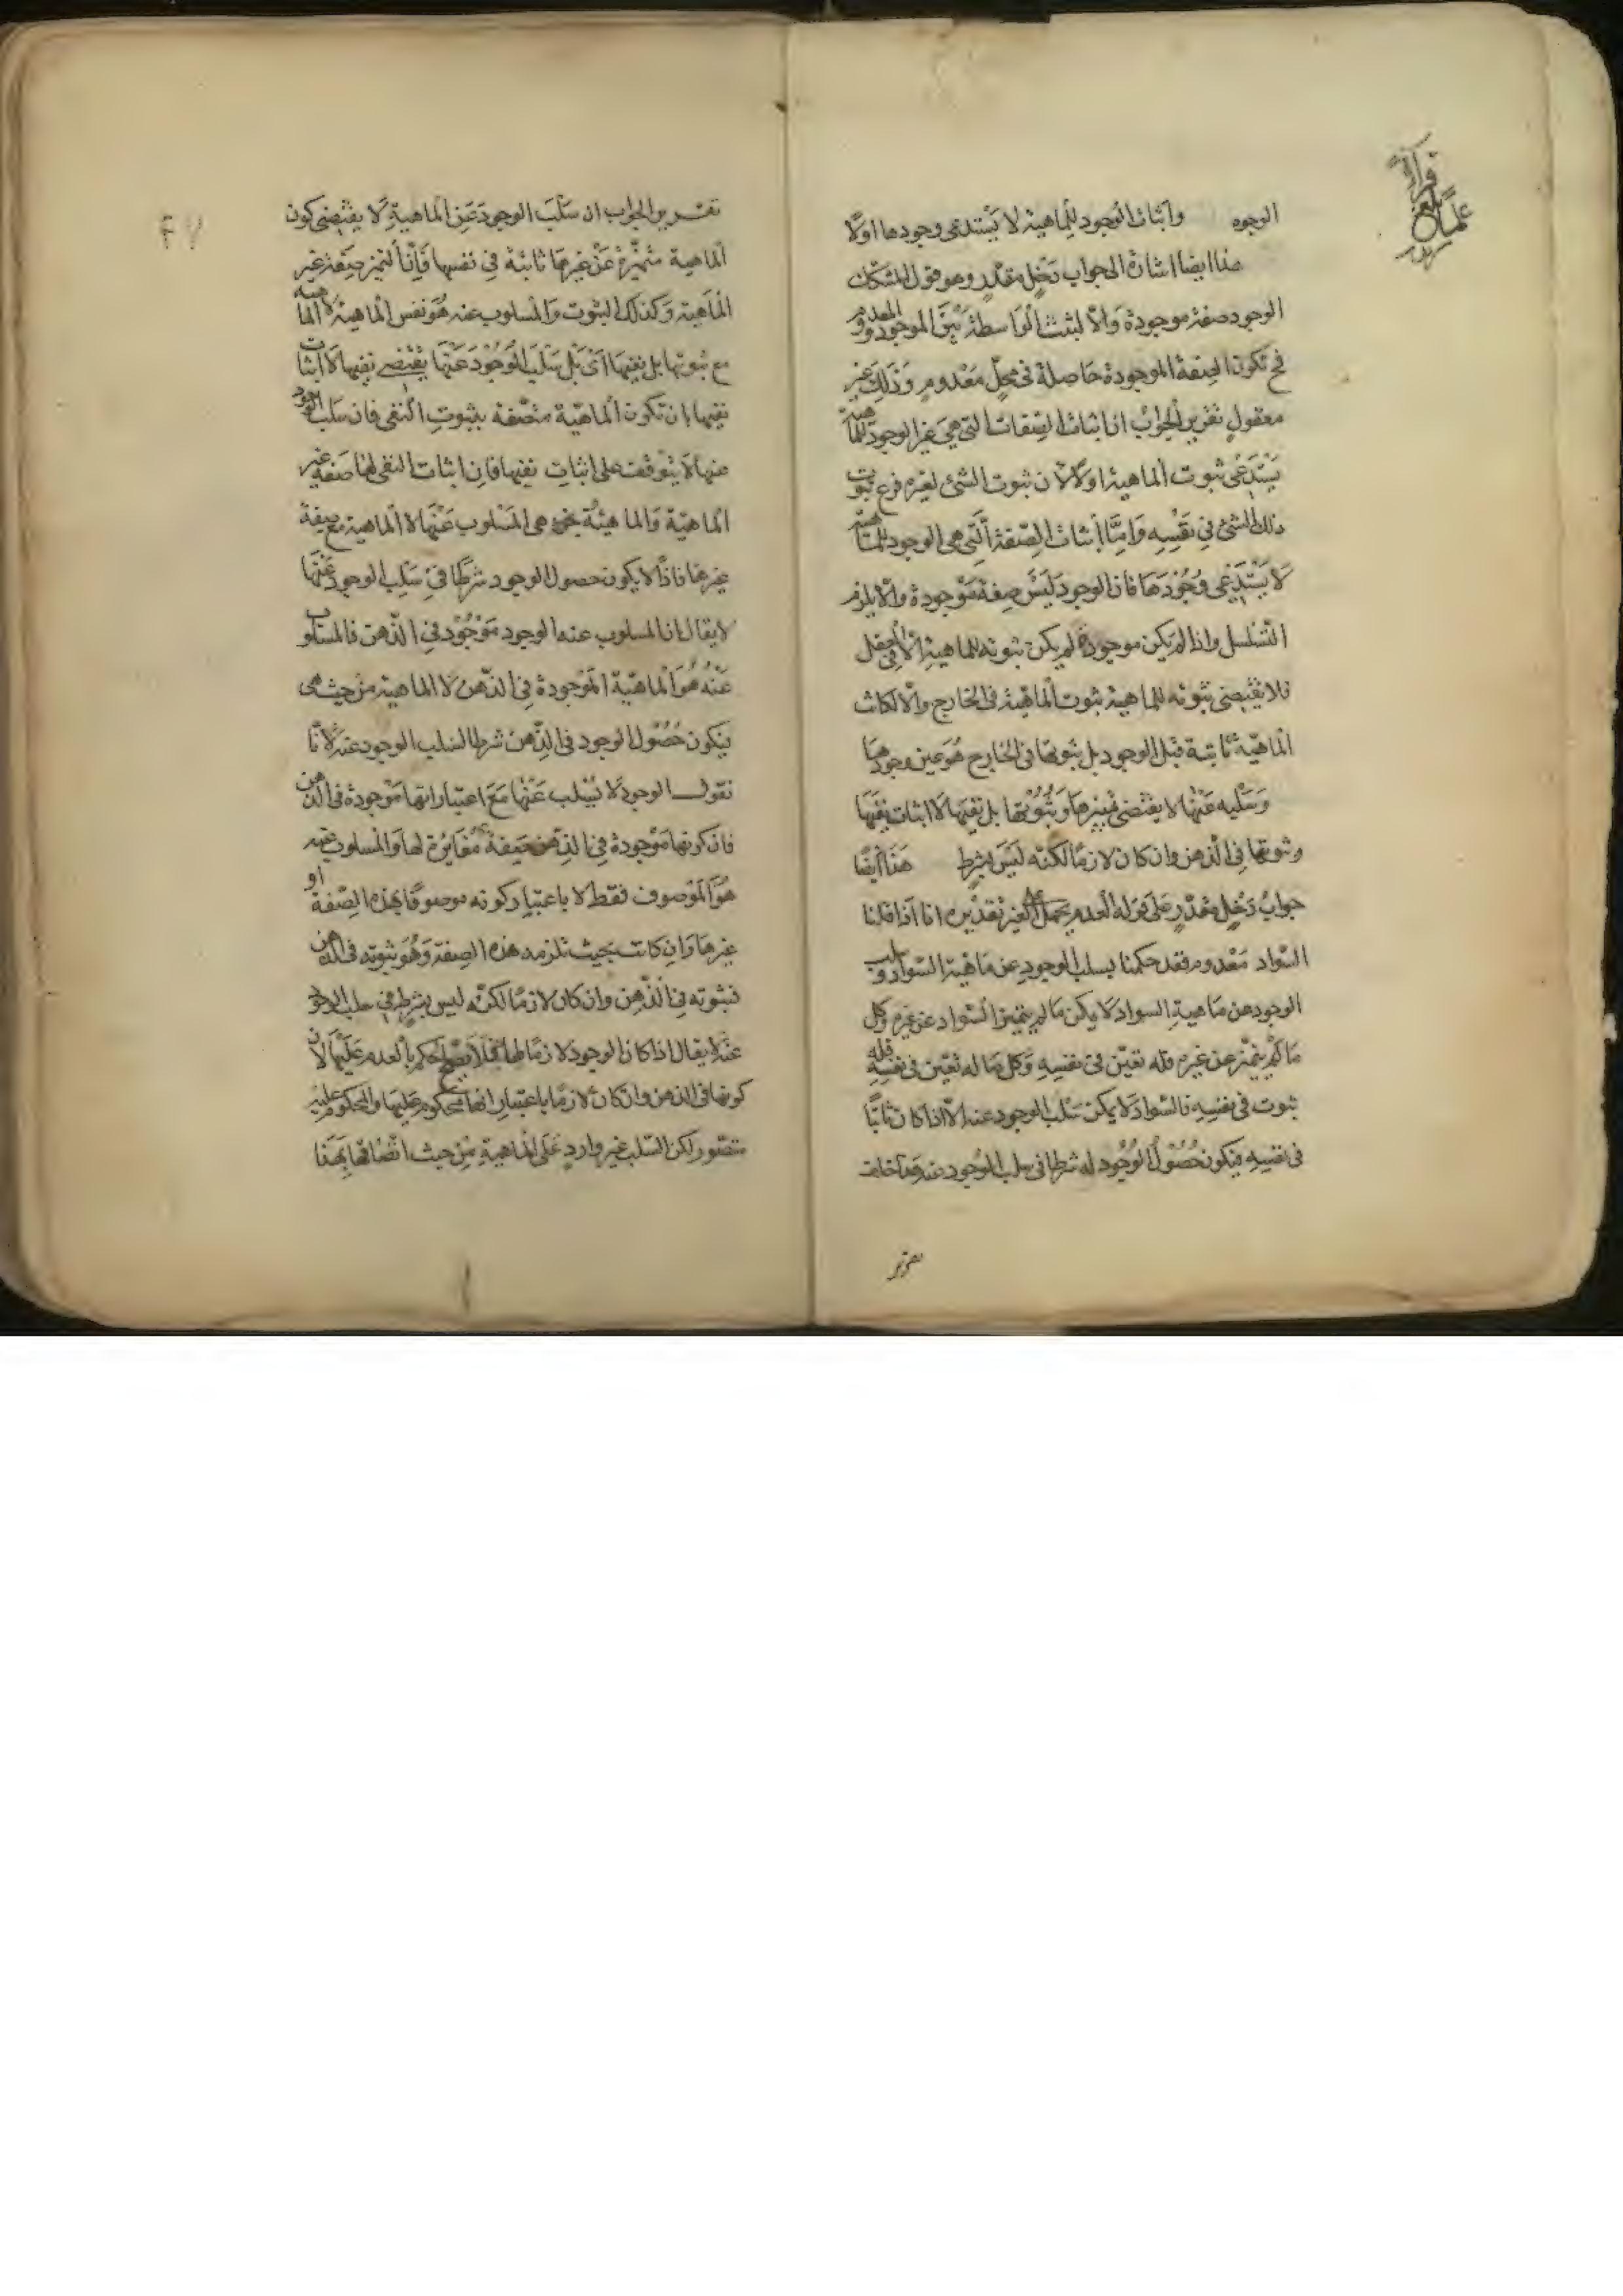 الوجوه واثبات الوجود للماهية لا يستدعى وجودها اولا
هذا ايضا اشارة الى جواب دخل مقدر وهو قول المشكك
الوجود صفة موجودة والا لثبت الواسطة بين الموجود والمعدوم
فح تكون الصفة الموجودة حاصلة فى محل معدوم وذلك غير
معقول تقرير الجواب ان اثبات الصفات التى هى غير الوجود للماهية
يستدعى ثبوت الماهية اولا لان ثبوت الشئ لغيره فرع ثبوت
ذلك الشئ فى نفسه واما اثبات الصفة التى هى الوجود للماهية
لا يستدعى وجودها فان الوجود ليس صفة موجودة والا يلزم
التسلسل واذا لم يكن موجودة لم يكن ثبوته للماهية الا فى العقل
فلا يقتضى ثبوته للماهية ثبوت الماهية فى الخارج والا لكانت
الماهية ثابتة قبل الوجود بل ثبوتها فى الخارج هو عين وجودها
وسلبه عنها لا يقتضى تميزها وثبوتها بل نفيها لا اثبات نفيها
وثبوتها فى الذهن وان كان لازما لكنه ليس بشرط هذا ايضا
جواب دخل مقدر على قوله العدم يحمل على الغير تقديره انا اذا قلنا
السواد معدوم فقد حكمنا بسلب الوجود عن ماهية السواد وسلب
الوجود عن ماهية السواد لا يمكن ما لم يتميز السواد عن غيره وكل
ما لم يتميز عن غيره فله تعين فى نفسه وكل ما له تعين فى نفسه فله
ثبوت فى نفسه فالسواد لا يمكن سلب الوجود عنه الا اذا كان ثابتا
فى نفسه فيكون حصول الوجود له شرطا فى سلب الوجود عنه هذا خلف
تقرير
تقرير الجواب ان سلب الوجود عن الماهية لا يقتضى كون
الماهية متميزة عن غيرها ثابتة فى نفسها فان التميز صفة غير
الماهية وكذلك الثبوت والمسلوب عنه هو نفس الماهية لا الماهية
مع ثبوتها بل نفيها اى بل سلب الوجود عنها يقتضى نفيها لا اثبات
نفيها بان تكون الماهية متصفة بثبوت النفى فان سلب الوجود
عنها لا يتوقف على اثبات نفيها فان اثبات النفى لها صفة غير
الماهية والماهية هى المسلوب عنها لا الماهية مع صفة
غيرها فاذا لا يكون حصول الوجود شرطا فى سلب الوجود عنها
لا يقال ان المسلوب عنه الوجود موجود فى الذهن فالمسلوب
عنه هو الماهية الموجودة فى الذهن لا الماهية من حيث هى
فيكون حصول الوجود فى الذهن شرطا لسلب الوجود عنه لانا
نقول الوجود لا يسلب عنها مع اعتبار انها موجودة فى الذهن
فان كونها موجودة فى الذهن صفة مغايرة لها والمسلوب عنه
هو الموصوف فقط لا باعتبار كونه موصوفا بهذه الصفة او
غيرها وان كانت بحيث تلزمه هذه الصفة وهو ثبوته فى الذهن
فثبوته فى الذهن وان كان لازما لكنه ليس بشرط فى سلب الوجود
عنه لا يقال اذا كان الوجود لازما لها فلا يصح الحكم بالعدم عليها لان
كونها فى الذهن وان كان لازما باعتبار انها محكوم عليها والمحكوم عليه
متصور لكن السلب غير وارد على الماهية من حيث اتصافها بهذا